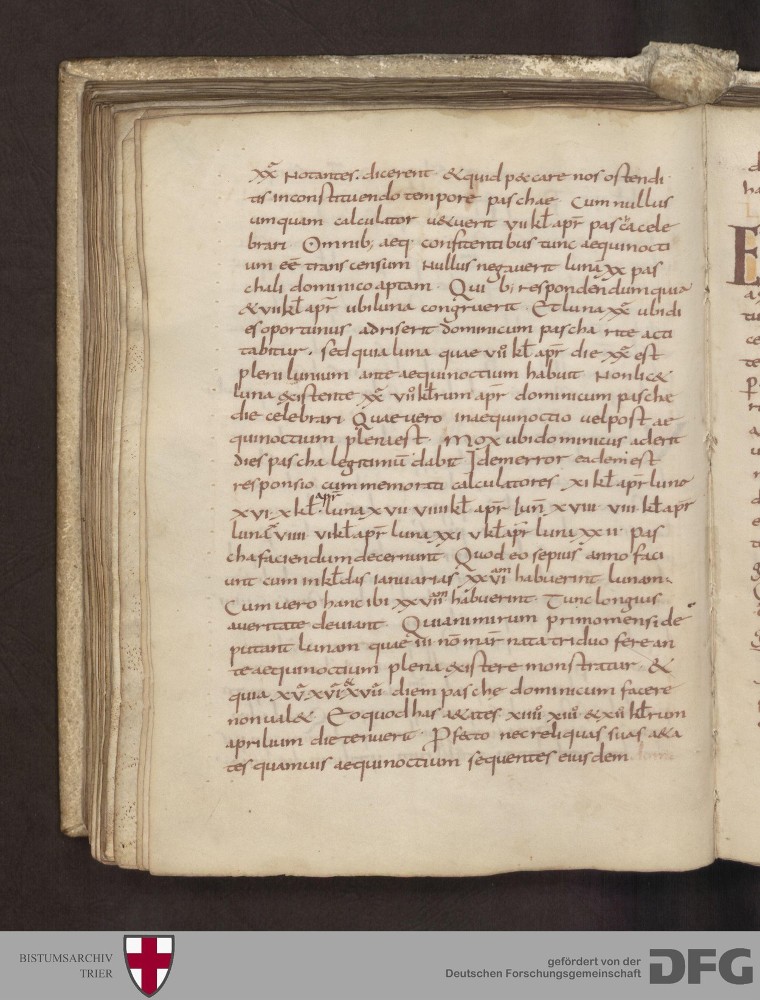 xx̄ Notantes. dicerent & quid peccare nos ostendi
tis inconstituendo tempore paschae Cum nullus
umquam calculator u&uerit vii kł apr̄ pasca cele
brari Omnib; aeq. confitentibus tunc aequinocti
um eē transcensum Nullus negauerit lunā xx pas
chali dominico aptam. Qui b; respondendum quia
& vii kł apr̄ ubi luna congruerit. Et luna xx̄ ubi di
es oportunus adriserit dominicum pascha rite acti
tabitur. sed quia luna quae vii kł apr̄ die xx̄ est
plenilunium ante aequinoctium habuit Non lic&
luna existente xx̄ vii kłrum apr̄ dominicum pasche
die celebrari. Quae uero inaequinoctio uel post ae
quinoctium plena est. Mox ubi dominicus aderit
dies pascha legitimū dabit Idem error eadem est
responsio cum memorati calculatores xi kł apr̄ luna
xvi. x kł apr̄ luna xvii viiii kł apr̄ lun̄ xviii. viii kł apr̄
luna viiii vi kł apr̄ luna xxi v kł apr̄ luna xxii pas
cha faciendum decernunt. Quod eo sepius anno faci
unt cum in kłdis ianuarias xxvi habuerint lunam.
Cum uero hanc ibi xxvii habuerint. Tunc longius
a ueritate deuiant. Quia nimirum primo mensi de
putant lunam quae iii nō mar̄ nata triduo fere an
te aequinoctium plena existere monstratur. &
quia xv xvi & xvii diem pasche dominicum facere
non ual& Eo quod has a&ates xiiii xiii & xii kłrum
aprilium die tenuerit. P fecto nec reliquas suas a&a
tes quamuis aequinoctium sequentes eiusdem
BISTUMSARCHIV
TRIER
gefördert von der
Deutschen Forschungsgemeinschaft
DFG